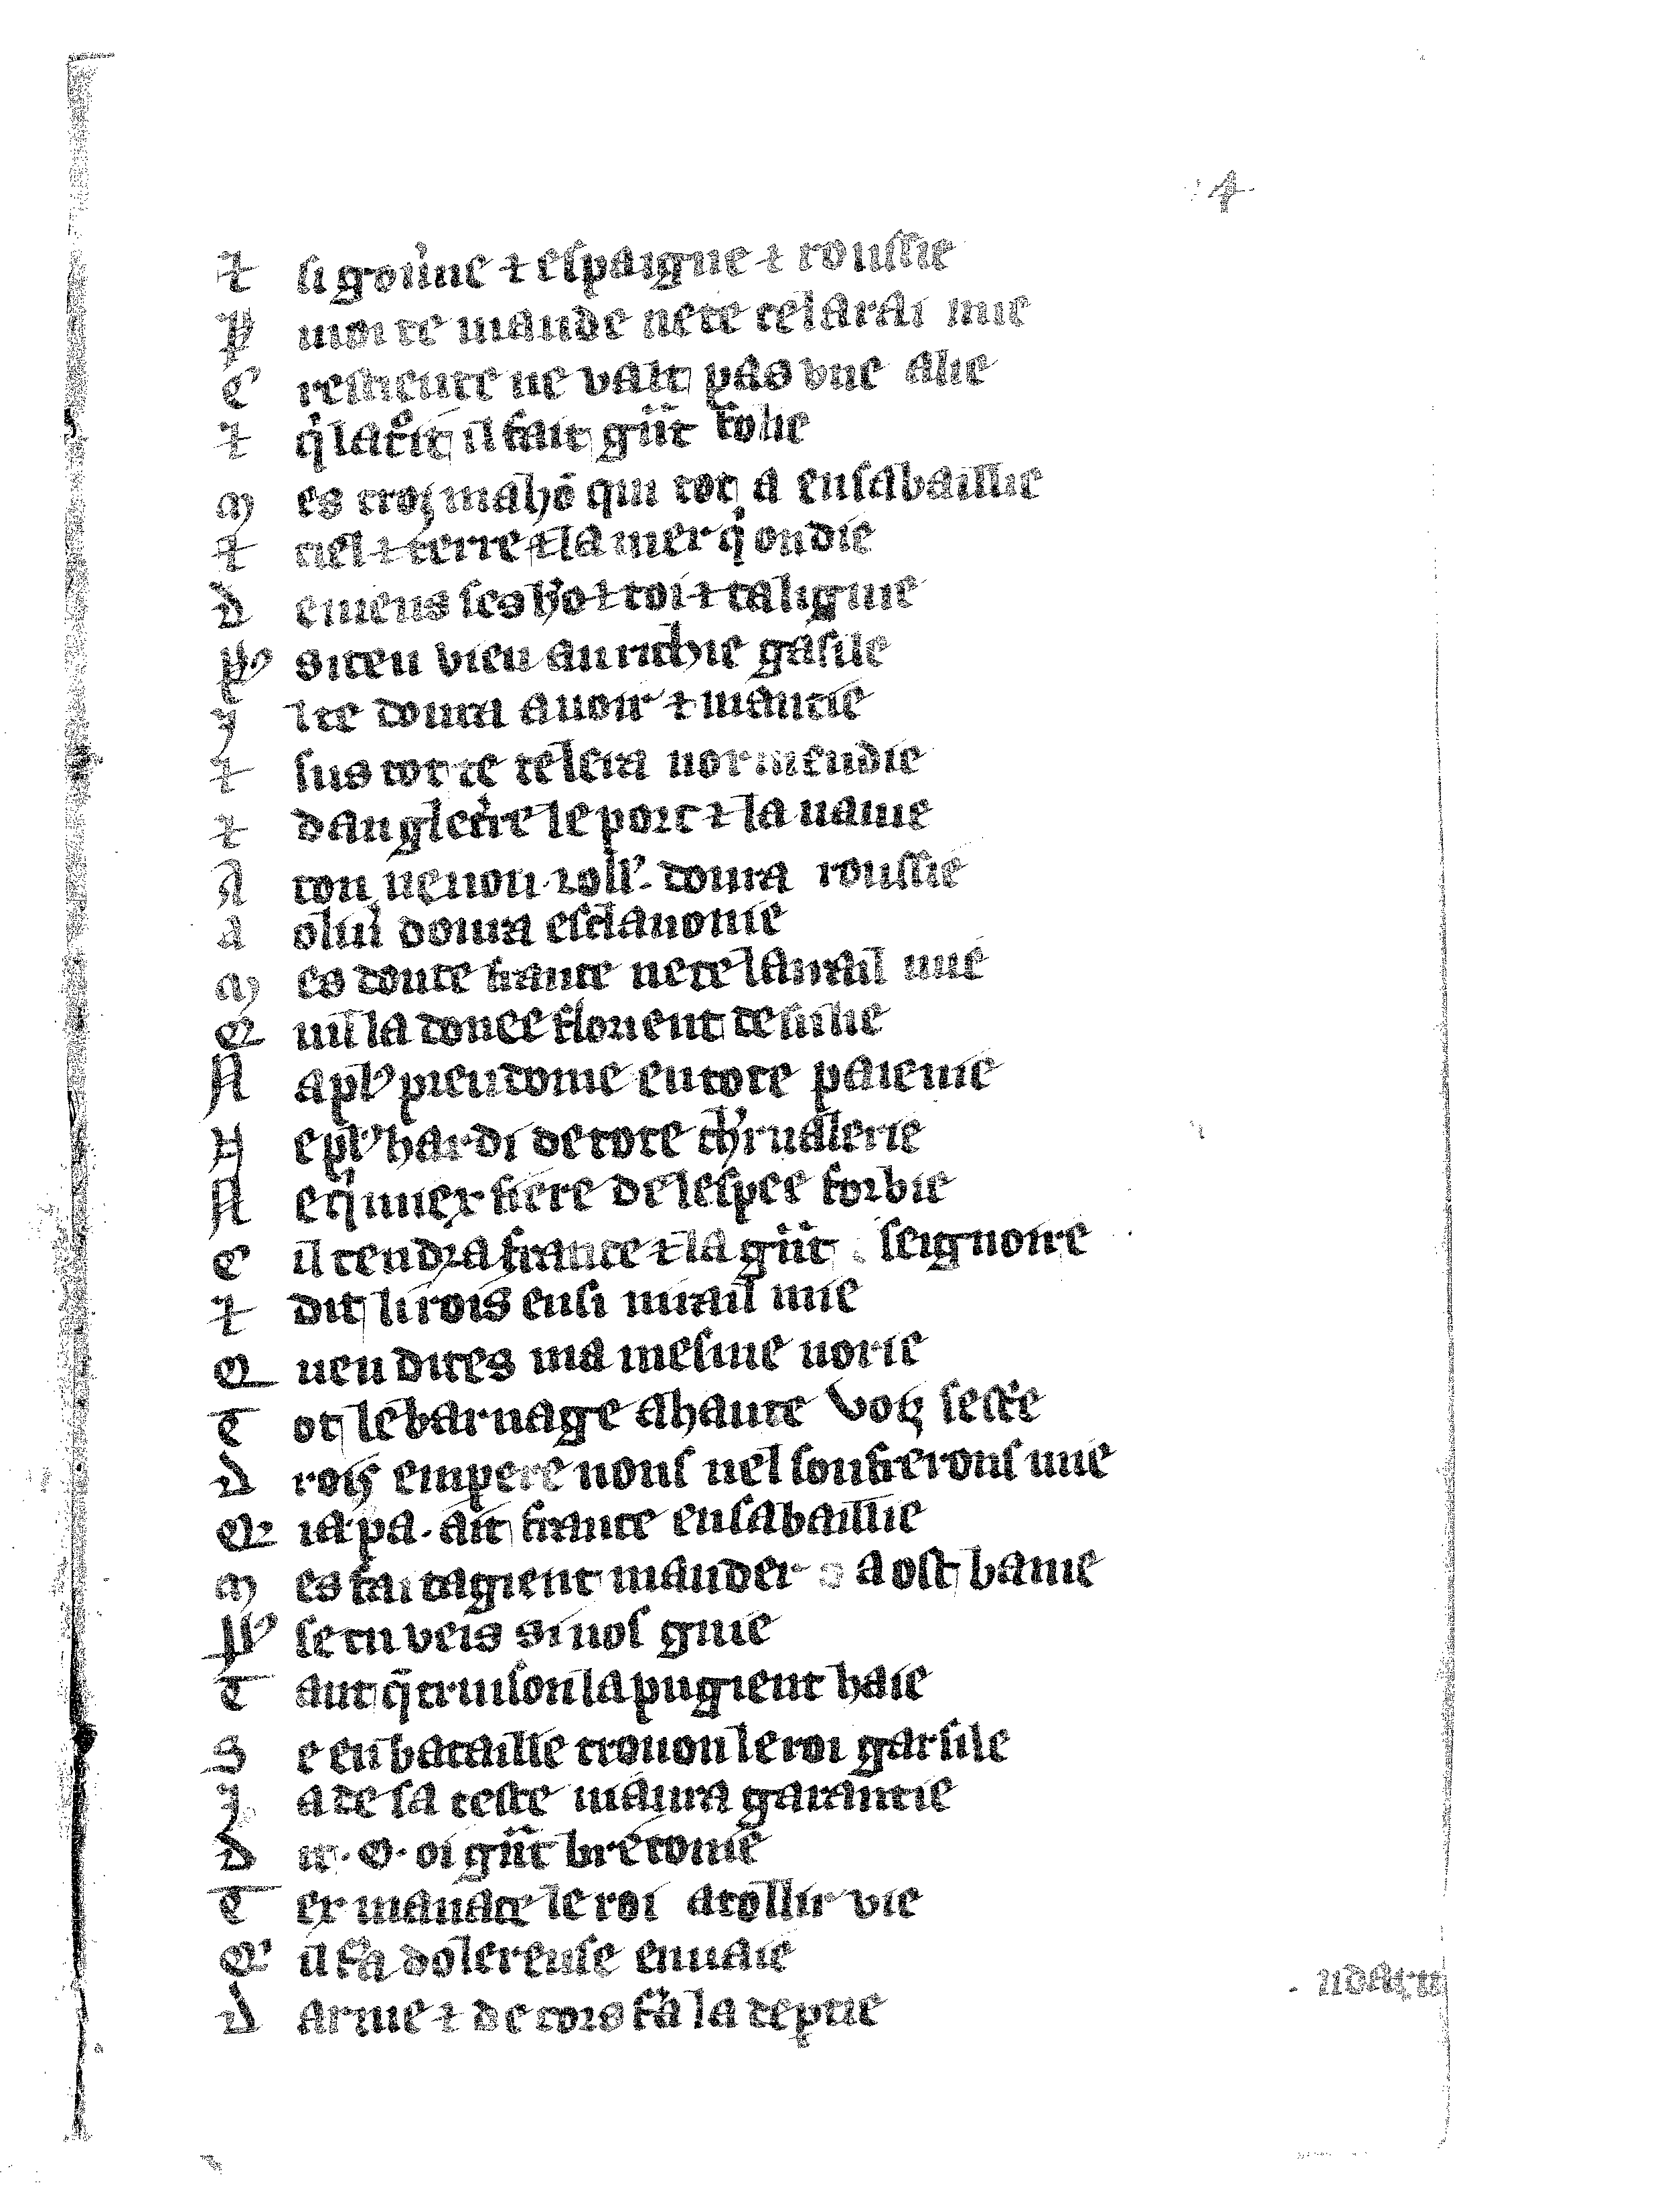 4
⁊ si gou̾ne ⁊ espaigne ⁊ roussie
P moi te mande nete celarai mie
C restiente ne valt pas vne alie
⁊ q̾ lac̾it il fait g̾nt folie
M es croiz mahō qui tot a ensabaillie
⁊ ciel ⁊ terre ⁊ la mer q̾ ondie
D emens ses ho ⁊ toi ⁊ ta lignie
P' siten vien au riche gasile
J lte donra auoir ⁊ manтie
⁊ sus tot te relera normendie
⁊ danglet̾re le port ⁊ la nauie
A ton neuou roll'. donra roussie
A oliu̾ donra esclauonie
M es douce france nete lairail mie
Q uil la donee florient de sulie
N a pl' preudome en tote paienie
N e pl' hardi de tote ch'rualerie
N e q̾ miex fiere de lespee forbie
C il tendra france ⁊ la g̾nt seignorie
⁊ dit li rois ensi nirail mie
Q uen dites ma mesnie norie
T ot le barnage a haute voiz sescr̾e
D roiz empere nous nel soufrerons mie
Q ia pa. ait france ensabaillie
M es fai ta gient mander a ost banie
P' se tu veis si nos guie
T ant q̄ truison la pugient haie
S e en bataille trouon le roi garsile
J a de sa teste maura garantie
D it .O. oi g̾nt bretonie
T er manace le roi a tollir vie
Q' il f̾a dolereuse enuaie
D arme ⁊ de cors f̾a la deptie